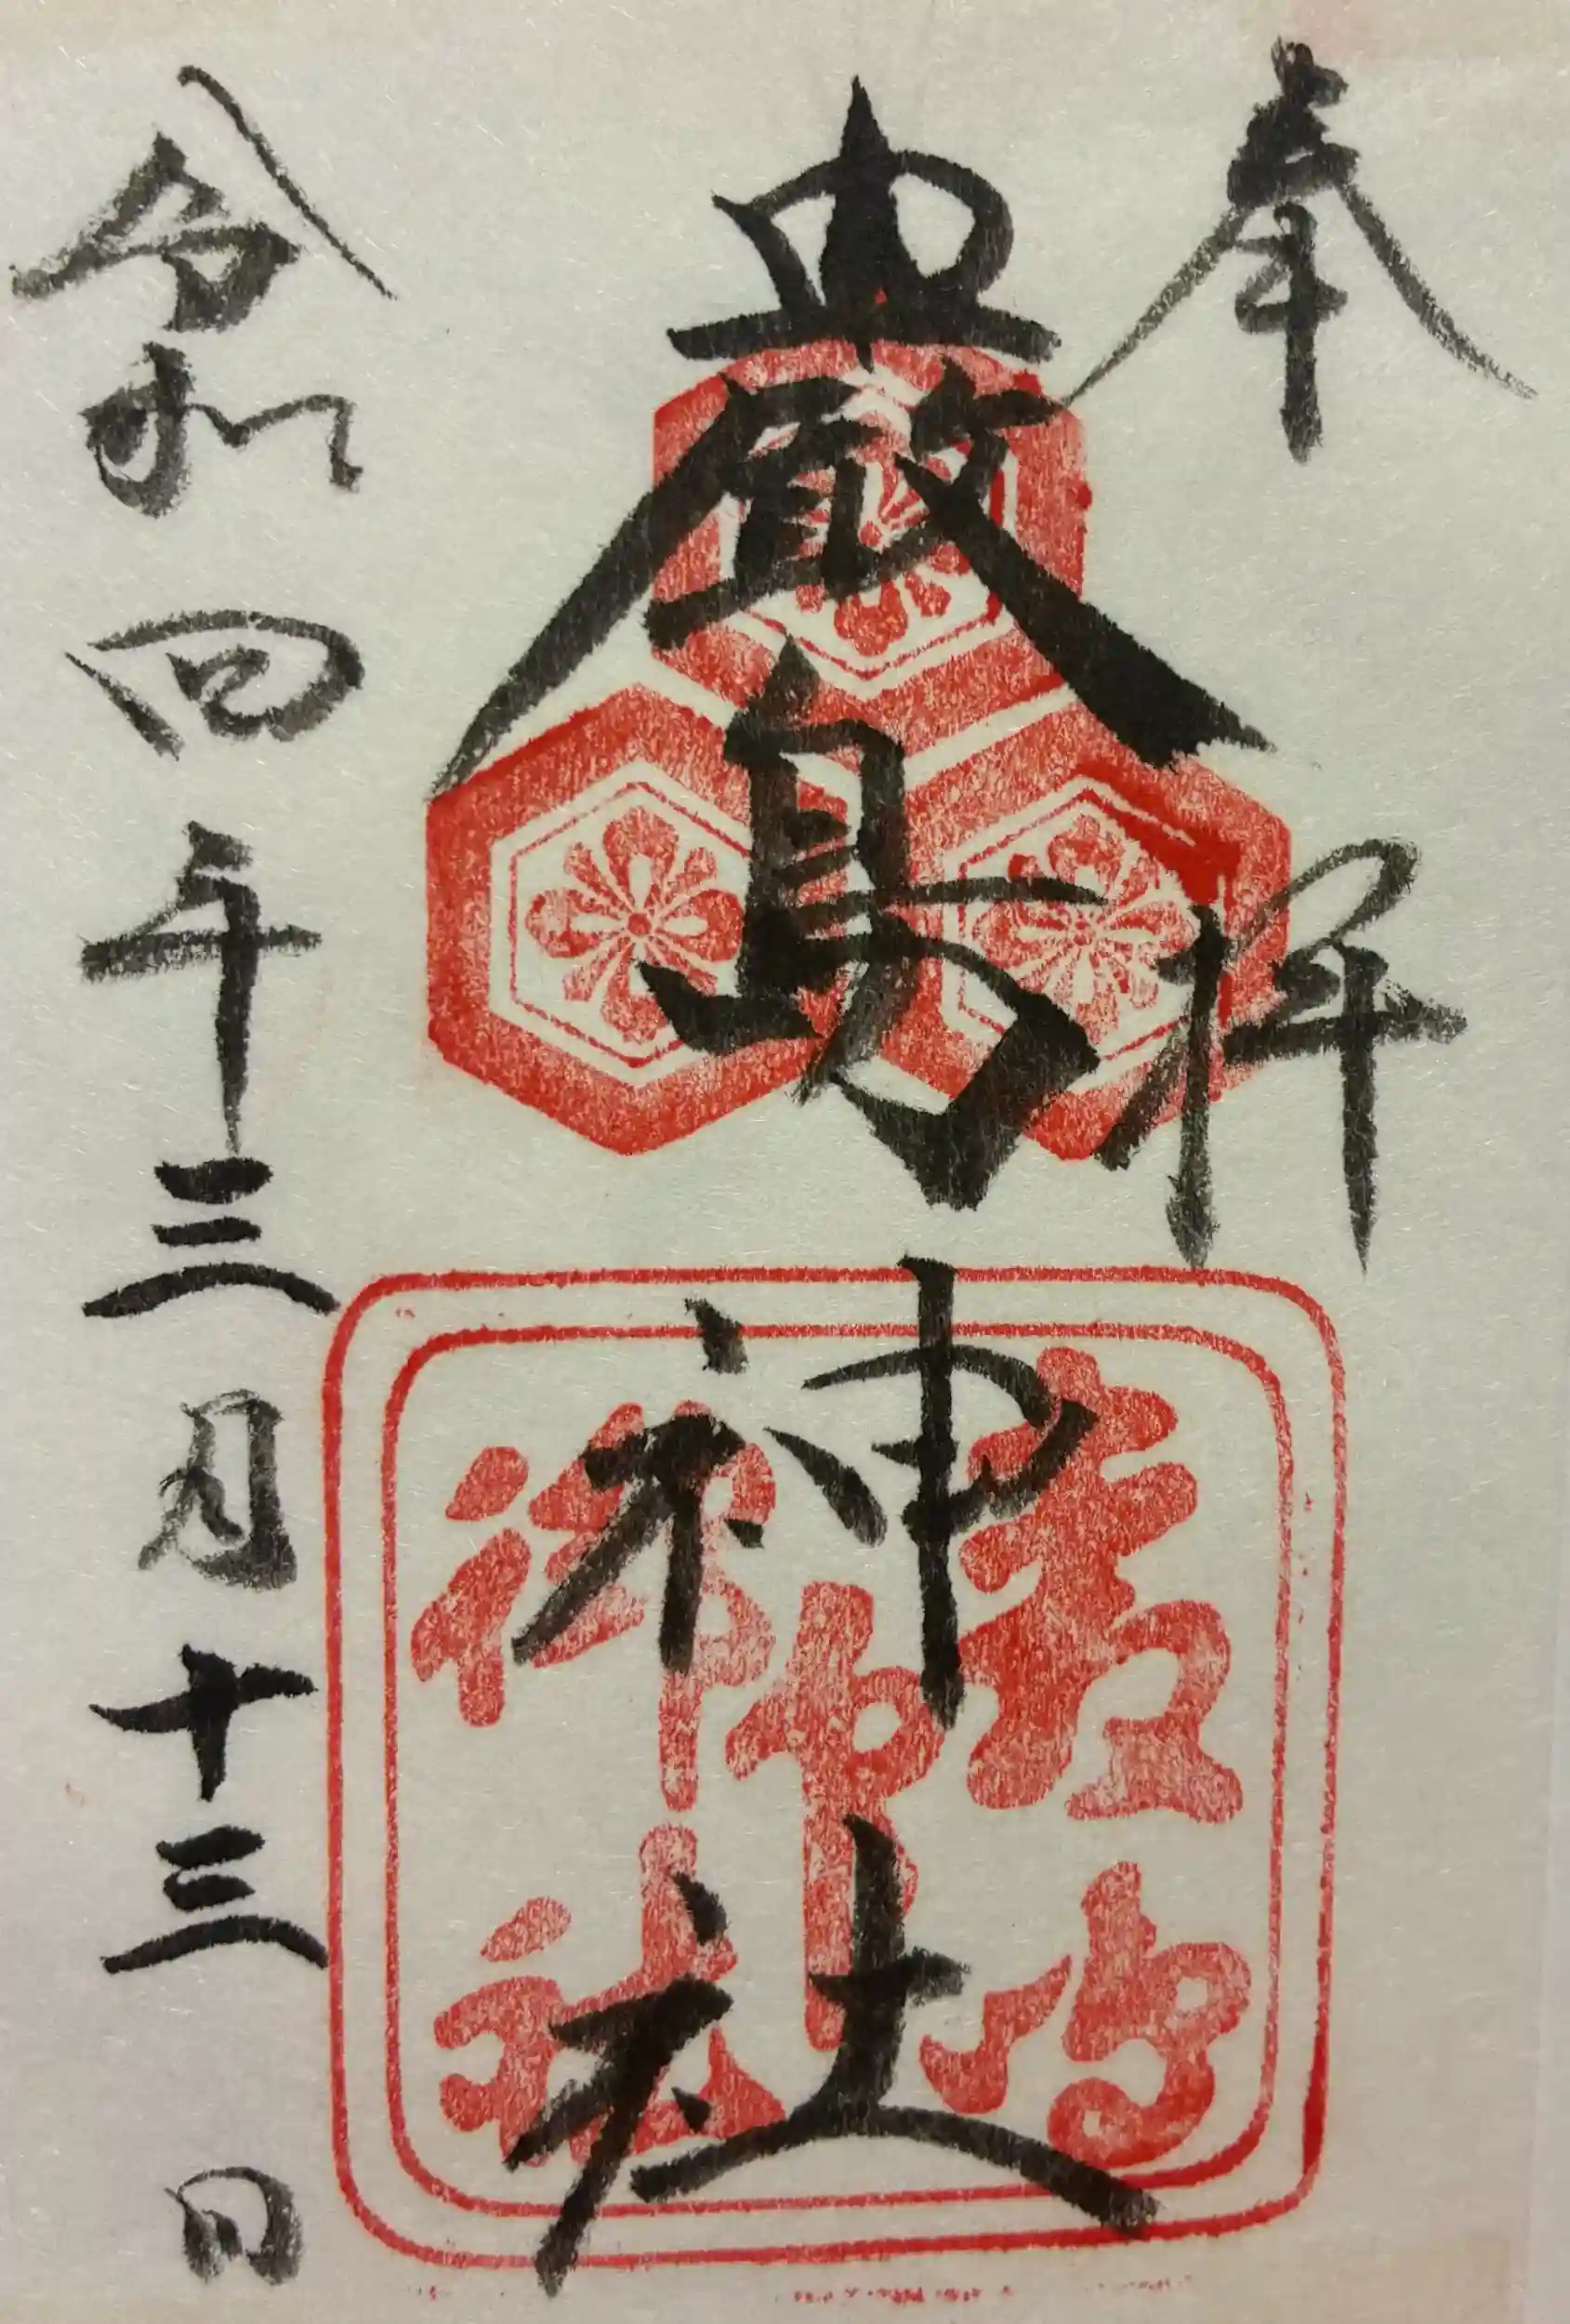 奉拝
嚴島神社
令和四年三月十三日
嚴島
神社